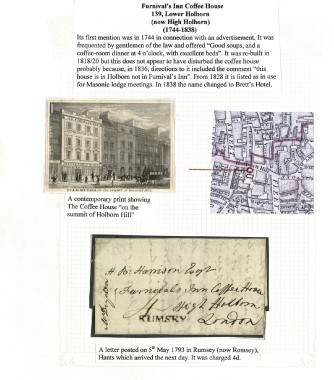 Furnival's Inn Coffee House
139, Lower Holborn
(now High Holborn)
(1744-1838)
Its first mention was in 1744 in connection with an advertisement. It was
frequented by gentlemen of the law and offered "Good soups, and a
coffee-room dinner at 4 o'clock, with excellent beds". It was re-built in
1818/20 but this does not appear to have disturbed the coffee house
probably because, in 1836, directions to it included the comment "this
house is in Holborn not in Furnival's Inn". From 1828 it is listed as in use
for Masonic lodge meetings. In 1838 the name changed to Brett's Hotel.
A contemporary print showing
The Coffee House "on the
summit of Holborn Hill"
H B: Harrison Esqr
Furnivals Inn Coffee House
High Holborn
RUMSEY
London
A letter posted on 5th May 1793 in Rumsey (now Romsey),
Hants which arrived the next day. It was charged 4d.